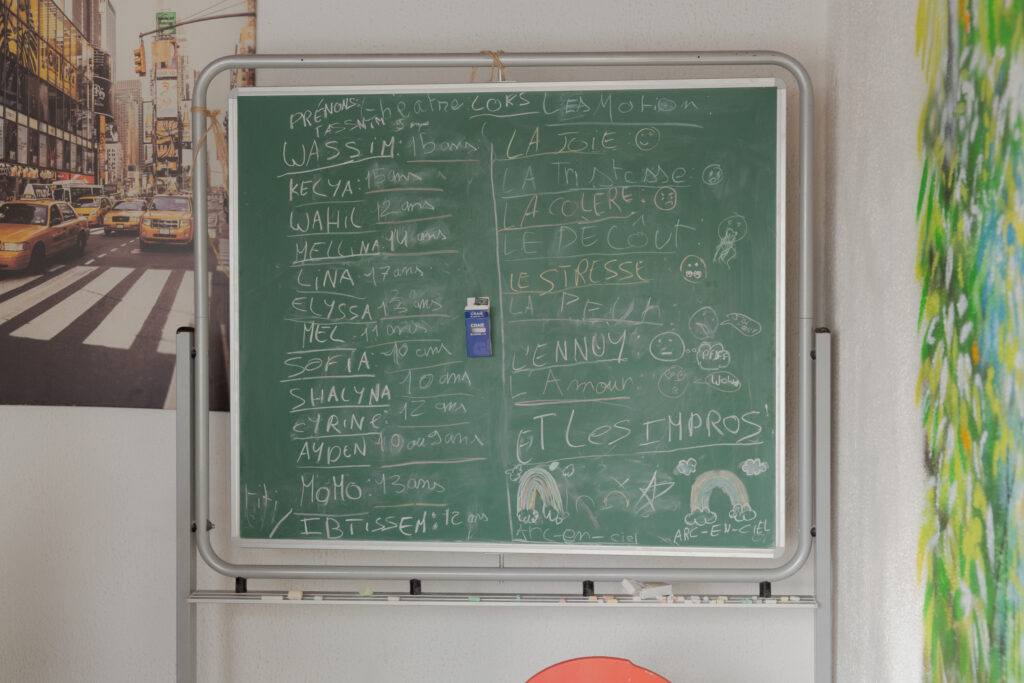 PRÉNOMS: théâtre LORS LESMOTION:
TASSNIM
WASSIM: 16 ans
KELYA: 15 ans
WAHIL 12 ans
MELLINA: 14 ans
LINA: 17 ans
ELYSSA 13 ans
MEL: 11 ans
SOFIA: 10 ans
SHALYNA 10 ans
EYRINE: 12 ans
AYDEN 10 ou 9 ans
MOMO: 13 ans
IBTISSEM: 12 ans
LA JOIE:
LA TristeSSe:
LA COLÈRE:
LE DÉGÔUT:
LE STRESSE
LA PEUR
L'ENNUY:
PFFF
L'Amour:
ET Les IMPROS:
Arc-en-ciel
ARC-EN-CIEL
CRAIE